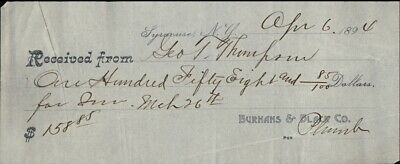 Syracuse, N.Y. Apr 6, 1894
Received from Geo T. Thompson
One Hundred Fifty Eight and 85/100 Dollars.
for Inv. Mch 26th
$158.85
BURHANS & BLACK CO.
PER Plumb